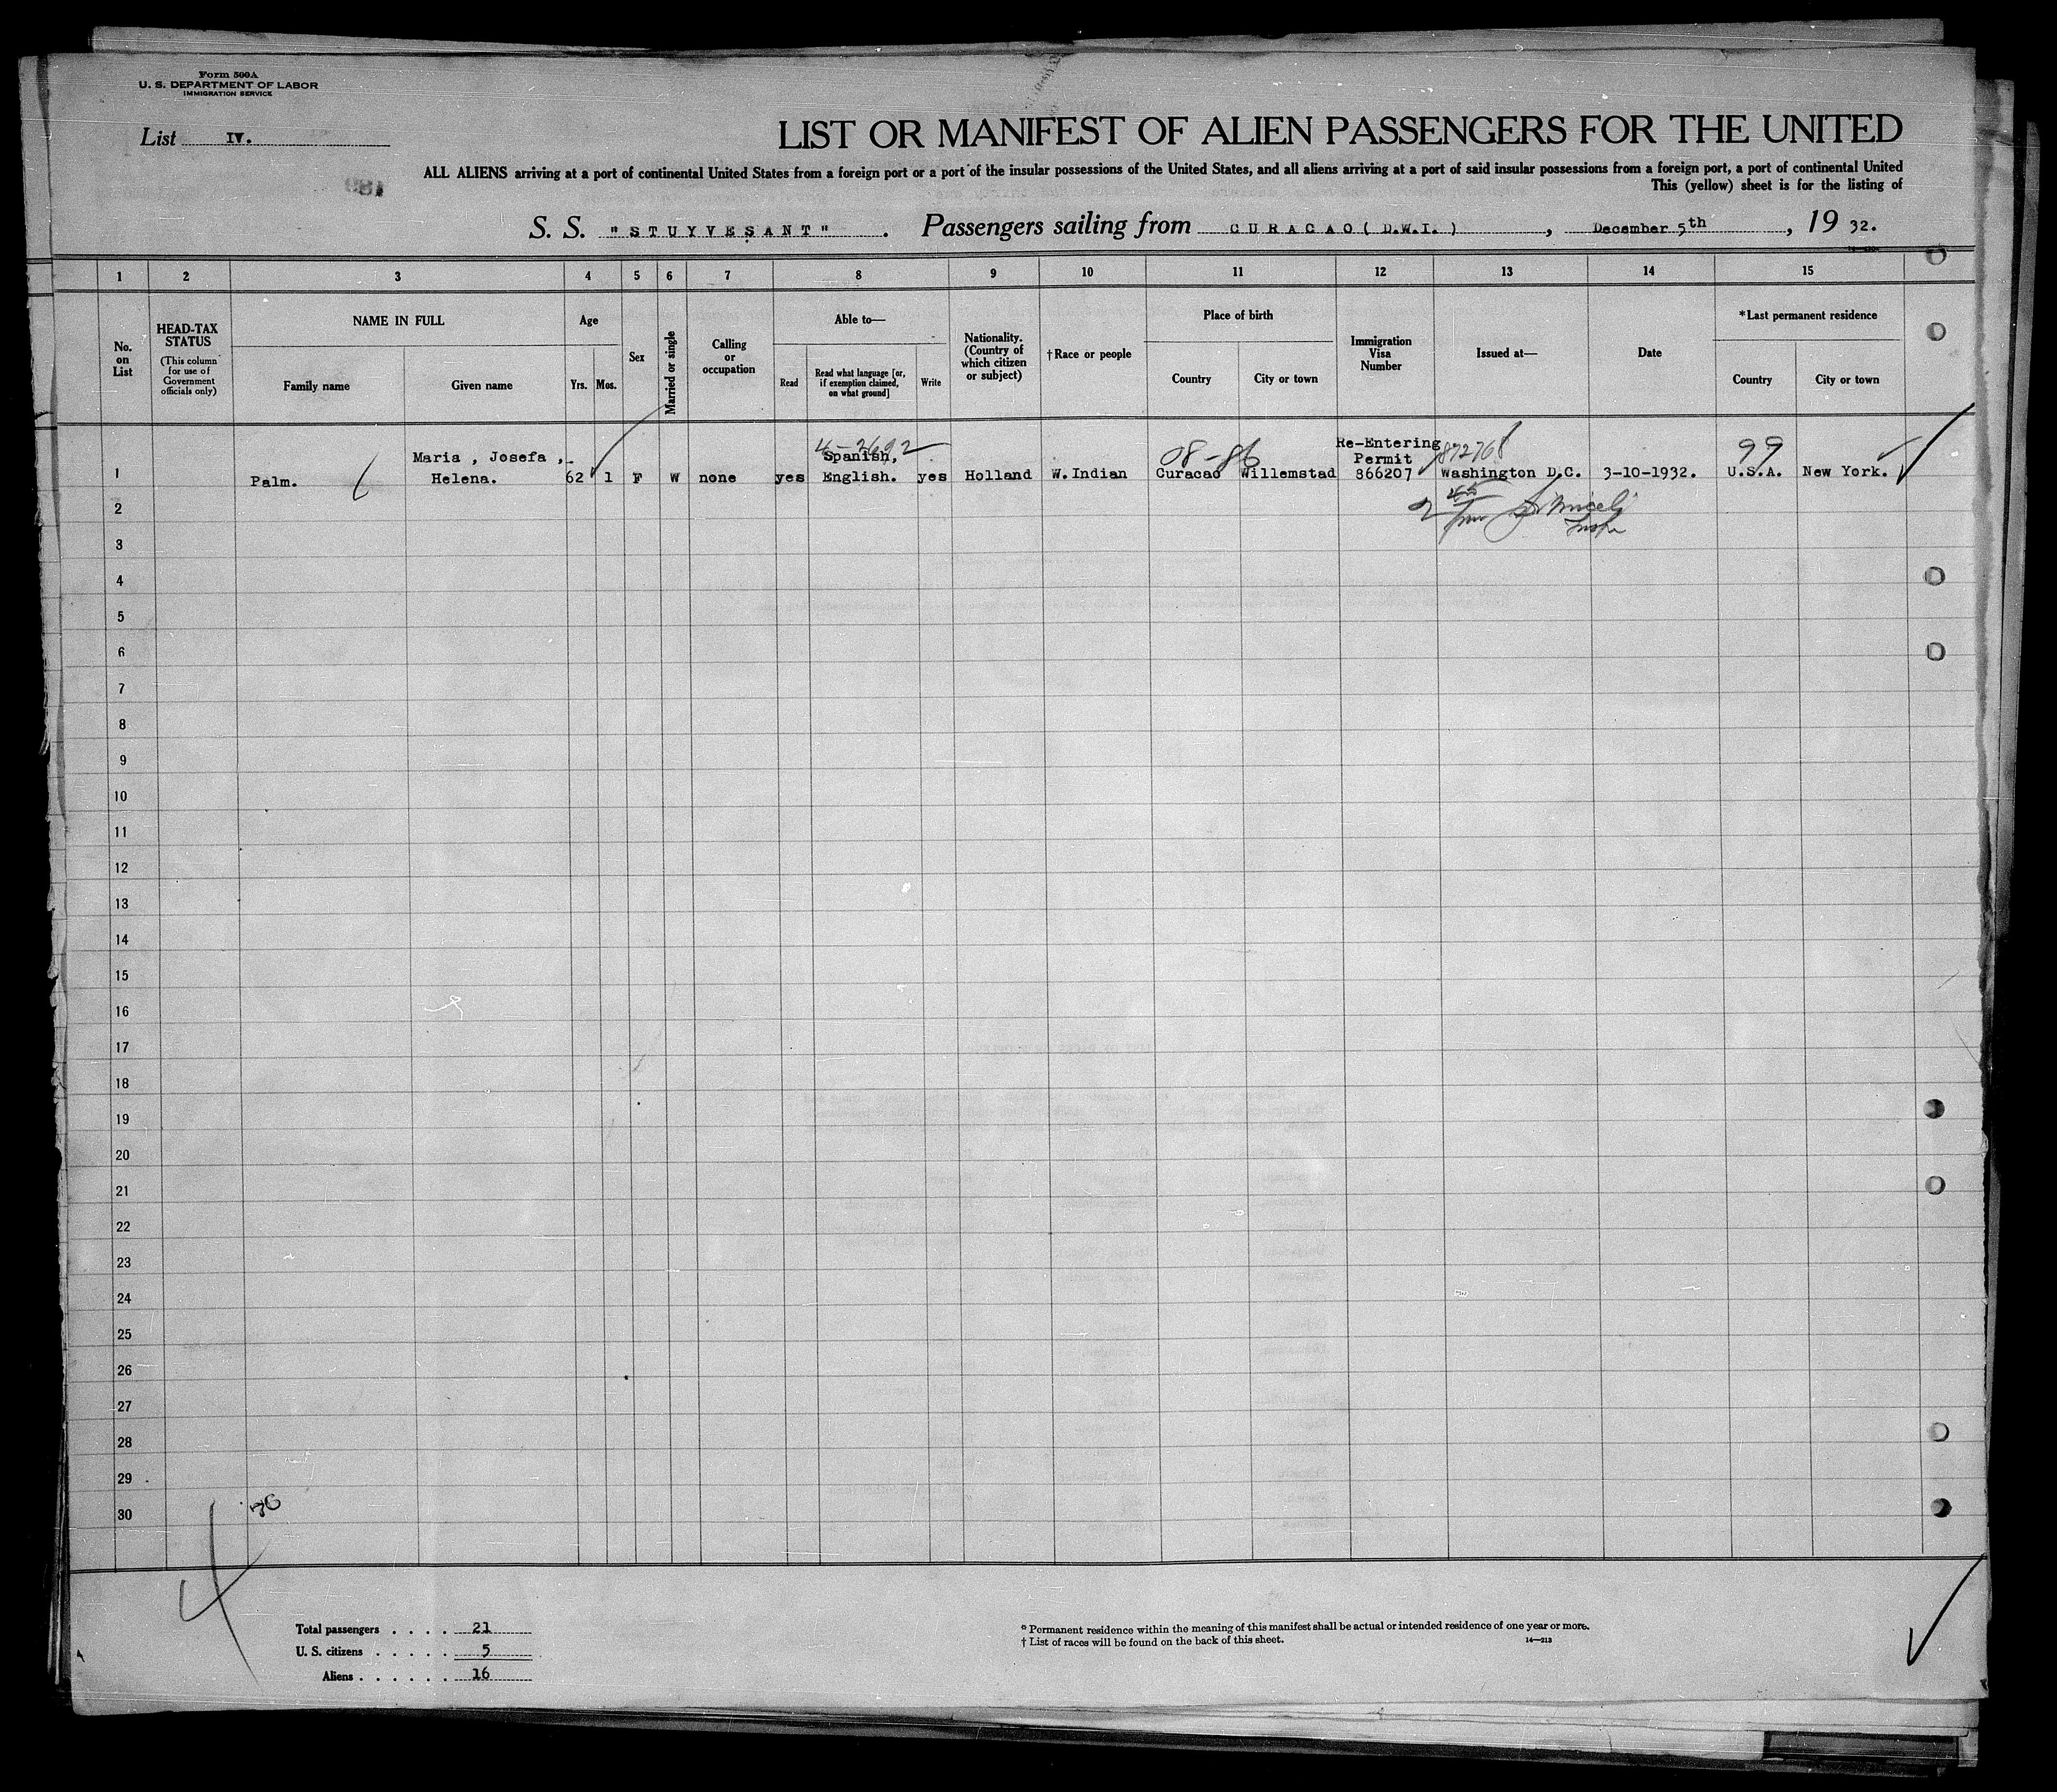 Form 500A
U. S. DEPARTMENT OF LABOR
IMMIGRATION SERVICE
List IV.
LIST OR MANIFEST OF ALIEN PASSENGERS FOR THE UNITED
ALL ALIENS arriving at a port of continental United States from a foreign port or a port of the insular possessions of the United States, and all aliens arriving at a port of said insular possessions from a foreign port, a port of continental United
This (yellow) sheet is for the listing of
S. S. "STUYVESANT" . Passengers sailing from CURACAO( D.W.I. ) , December 5th , 19 32.
1 2 3 4 5 6 7 8 9 10 11 12 13 14 15
No. on List
HEAD-TAX STATUS
(This column for use of Government officials only)
NAME IN FULL
Family name
Given name
Age
Yrs. Mos.
Sex
Married or single
Calling or occupation
Able to—
Read
Read what language [or, if exemption claimed, on what ground]
Write
Nationality. (Country of which citizen or subject)
†Race or people
Place of birth
Country
City or town
Immigration Visa Number
Issued at—
Date
*Last permanent residence
Country
City or town
4-2692
08-86
Re-Entering
872768
99
Maria , Josefa ,
Spanish,
Permit
1 Palm. Helena. 62 1 F W none yes English. yes Holland W.Indian Curacao Willemstad 866207 Washington D.C. 3-10-1932. U.S.A. New York.
2
3
4
5
6
7
8
9
10
11
12
13
14
15
16
17
18
19
20
21
22
23
24
25
26
27
28
29
30
Total passengers . . . . 21
U. S. citizens . . . . . 5
Aliens . . . . . . 16
* Permanent residence within the meaning of this manifest shall be actual or intended residence of one year or more.
† List of races will be found on the back of this sheet.
14—213